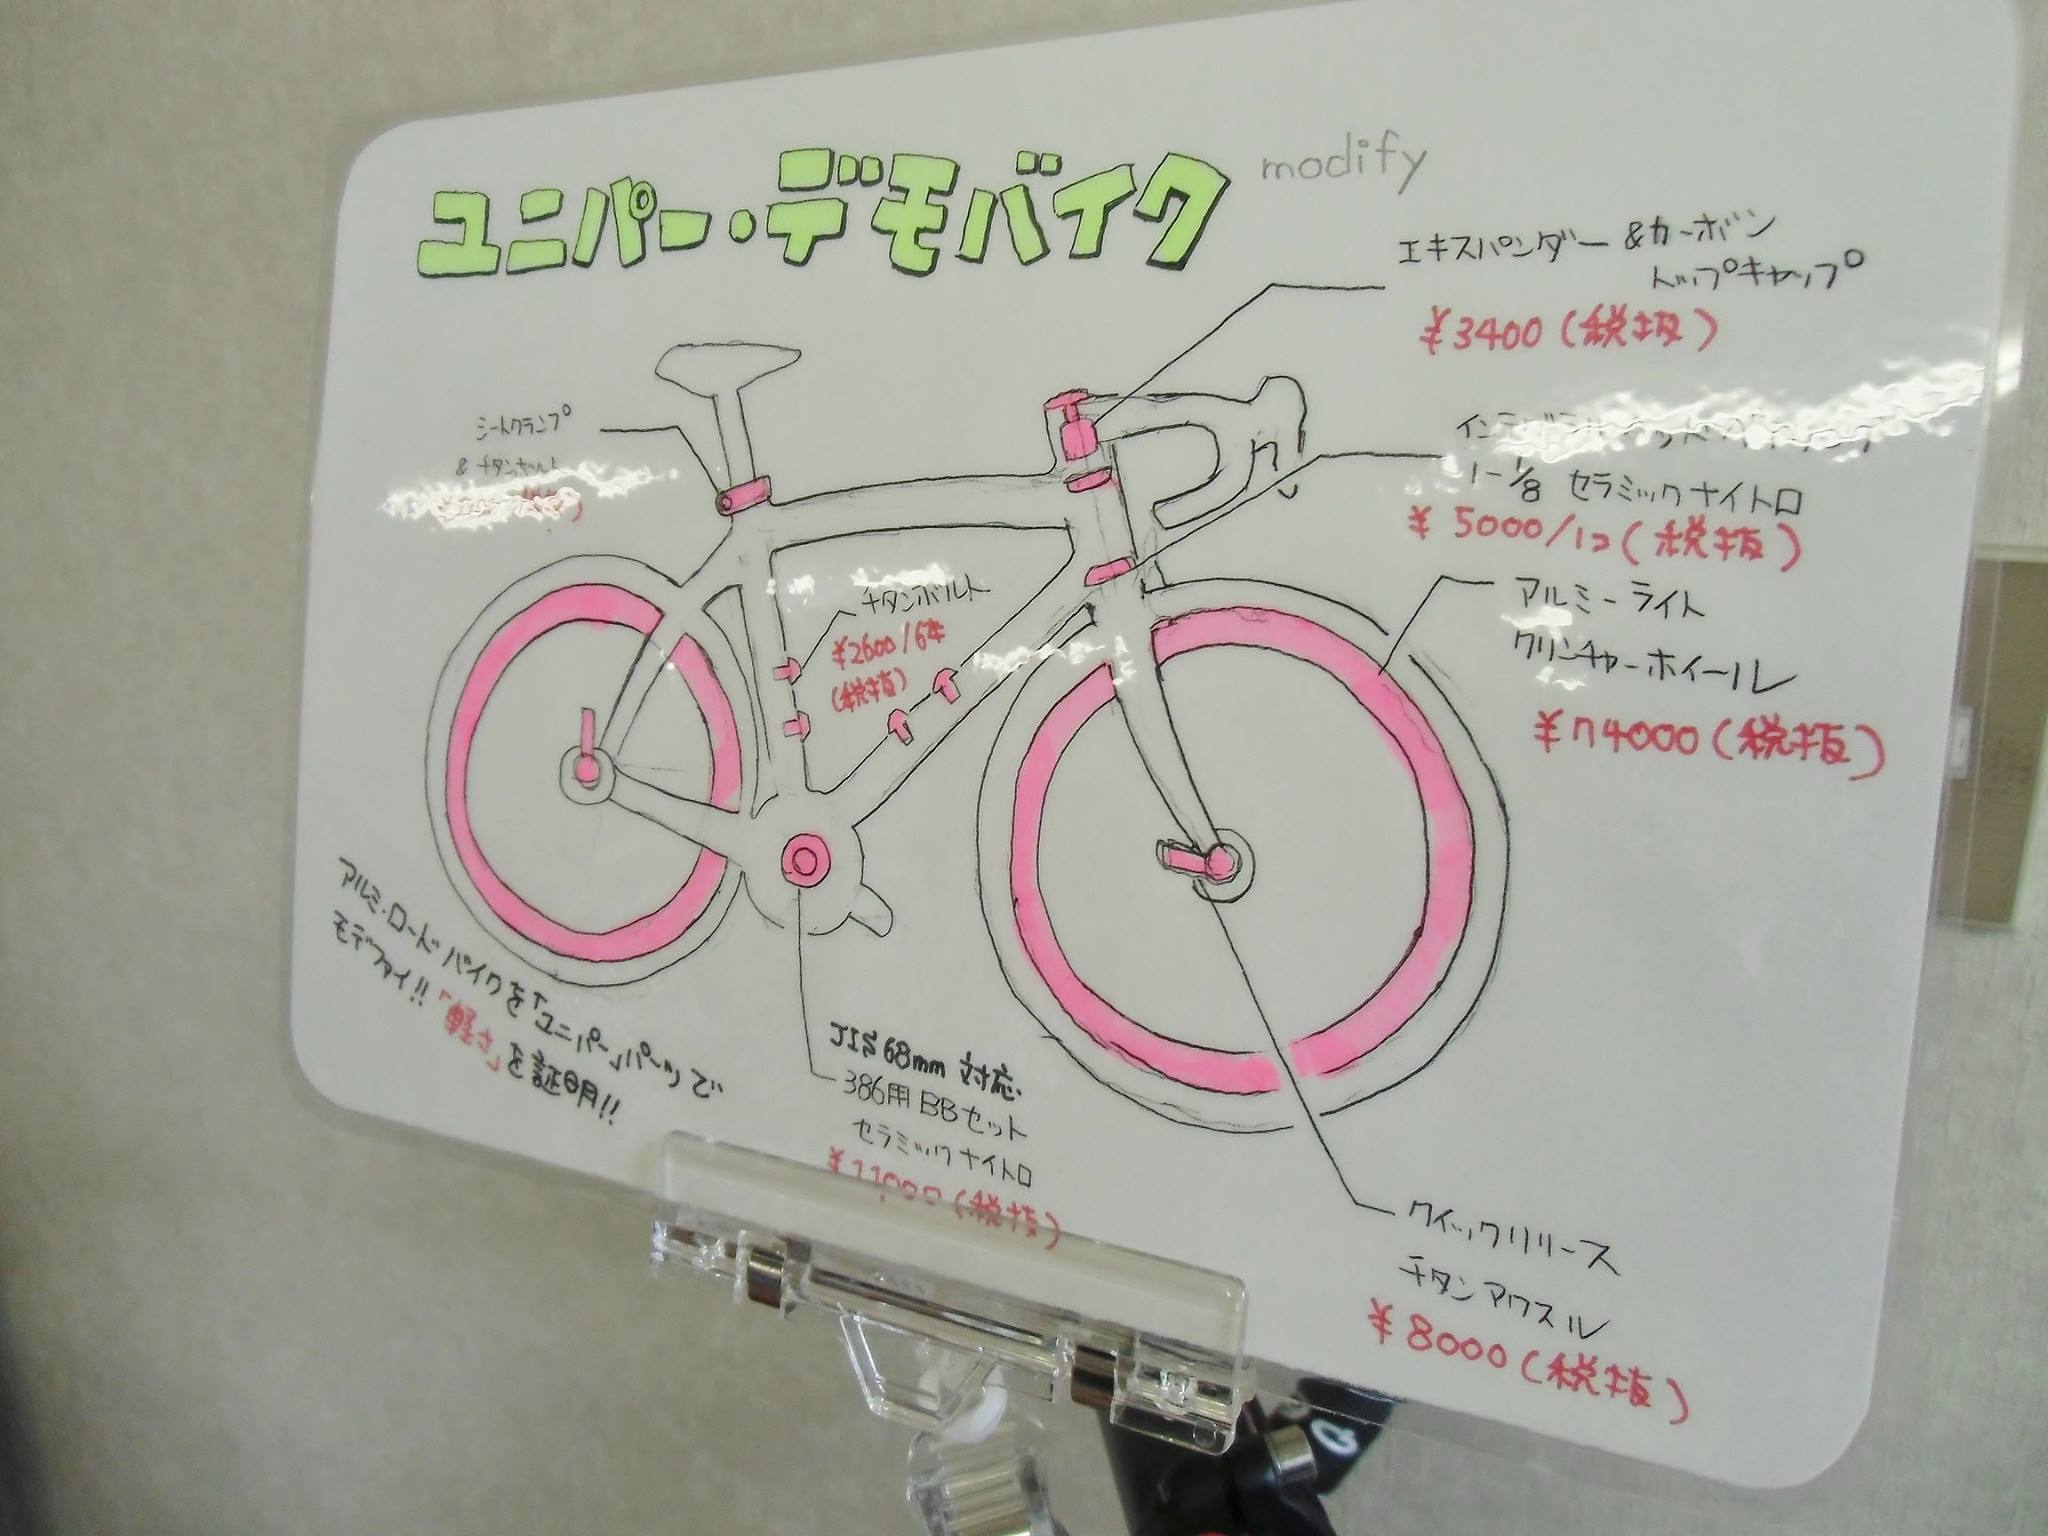 ユニパー・デモバイク modify
エキスパンダー &カーボン
トップキャップ
¥3400(税抜)
1-1/8 セラミックナイトロ
¥5000/1コ(税抜)
アルミーライト
クリンチャーホイール
¥74000(税抜)
シートクランプ
& チタンボルト
チタンボルト
¥2600/6本
(税抜)
アルミ・ロードバイクを「ユニパー」パーツで
モデファイ!!「軽さ」を証明!!
JIS68mm 対応.
386用BBセット
セラミックナイトロ
¥11000(税抜)
クイックリリース
チタンアクスル
¥8000(税抜)